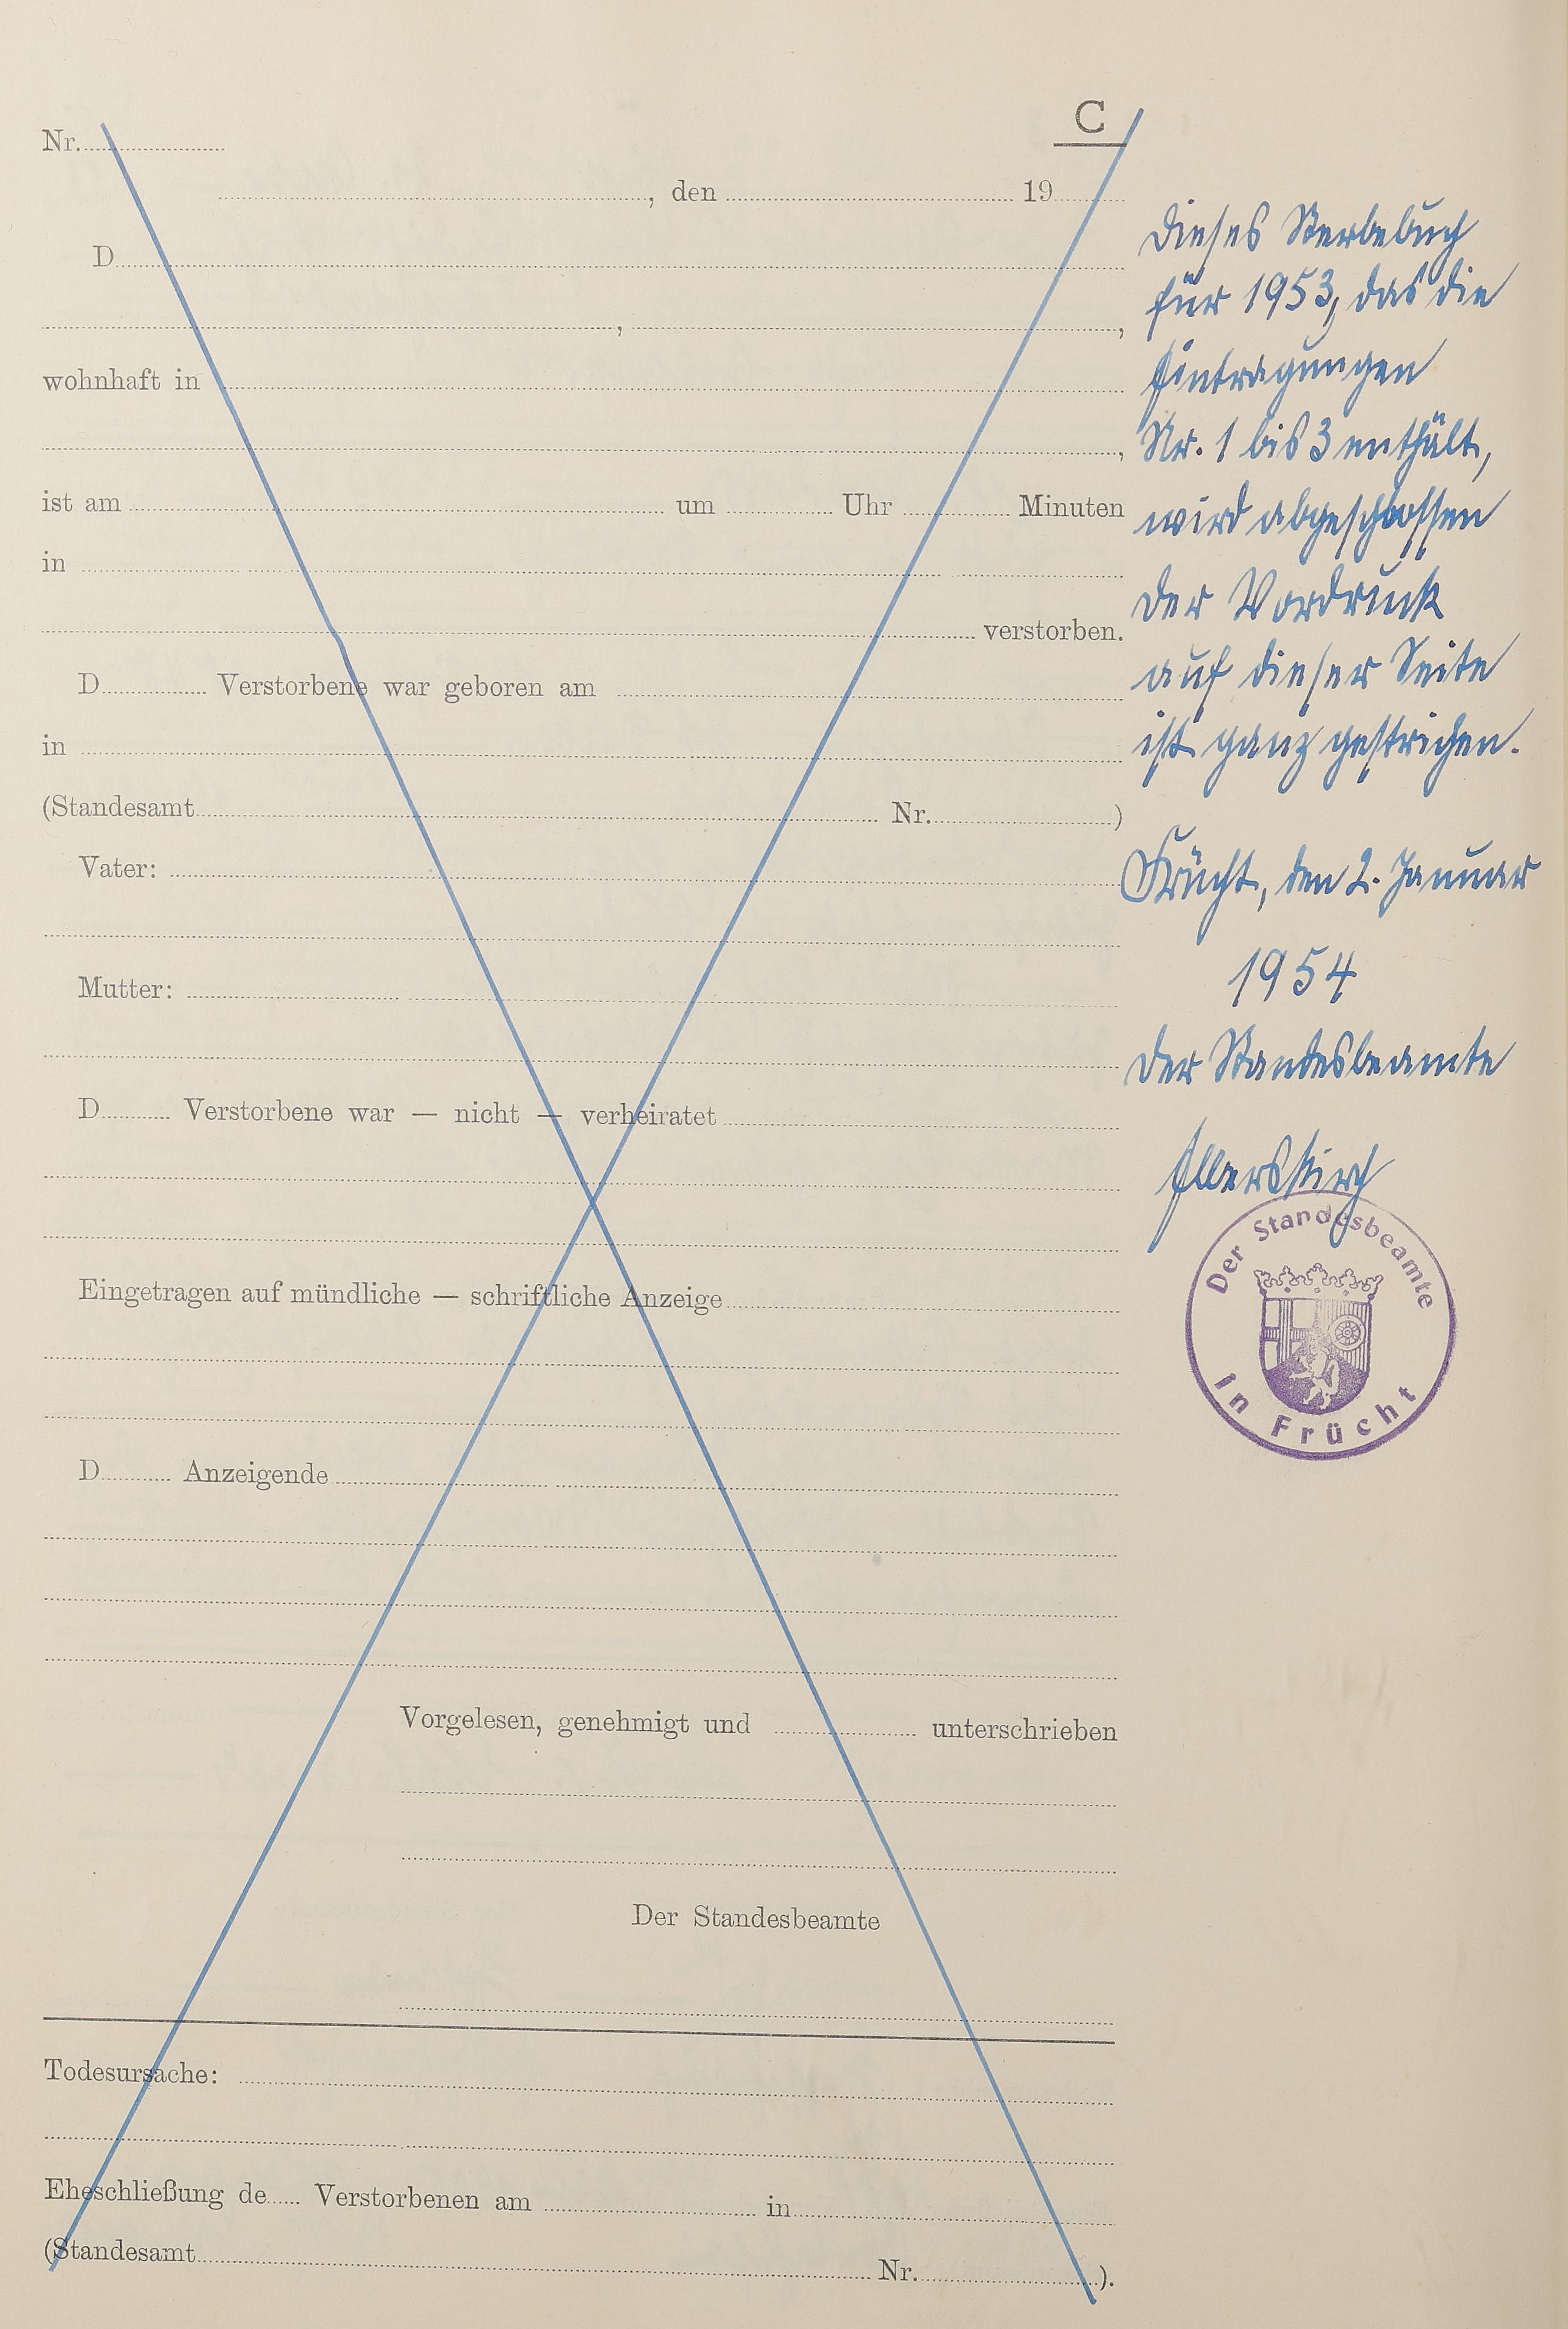 C
Nr.
, den 19
D
, ,
wohnhaft in
,
ist am um Uhr Minuten
in
verstorben.
D Verstorbene war geboren am
in
(Standesamt Nr. )
Vater:
Mutter:
D Verstorbene war — nicht — verheiratet
Eingetragen auf mündliche — schriftliche Anzeige
D Anzeigende
Vorgelesen, genehmigt und unterschrieben
Der Standesbeamte
Todesursache:
Eheschließung de Verstorbenen am in
(Standesamt Nr. ).
Dieses Sterbebuch
für 1953, das die
Eintragungen
Nr. 1 bis 3 enthält,
wird abgeschlossen
Der Vordruck
auf dieser Seite
ist ganz gestrichen.
Frücht, den 2. Januar
1954
Der Standesbeamte
Ellerskirch
Der Standesbeamte
in Frücht